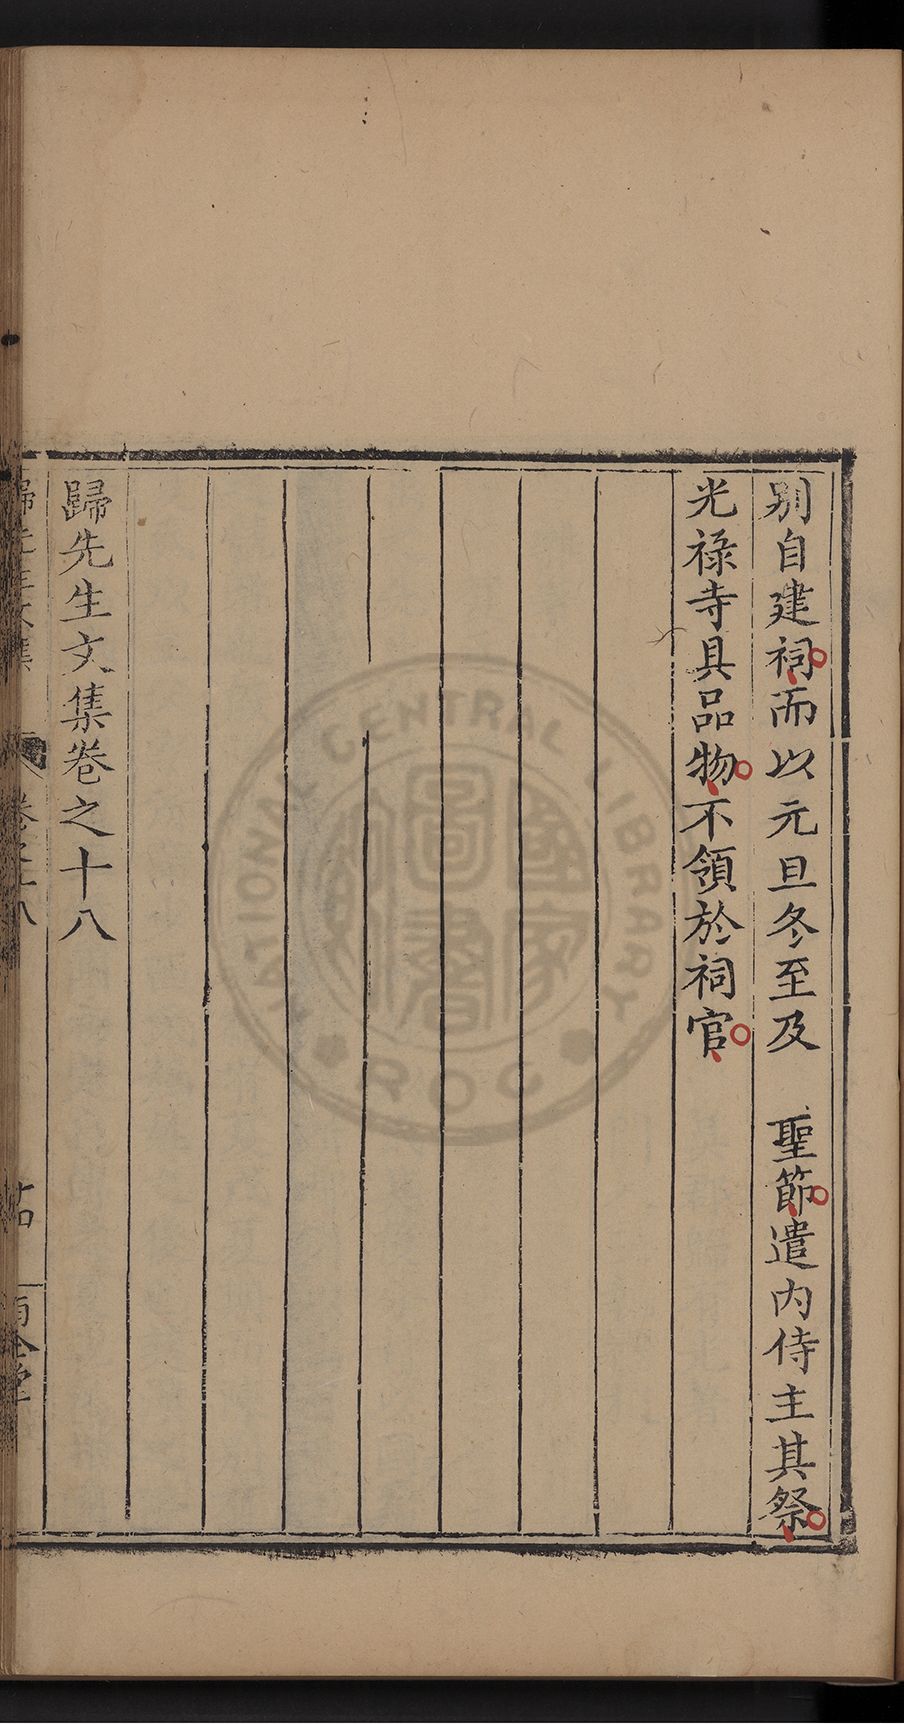 别自建祠而以元旦冬至及　聖節遣内侍主其祭
光禄寺具品物不領於祠官
歸先生文集卷之十八
NATIONAL CENTRAL LIBRARY
ROC
國家圖書